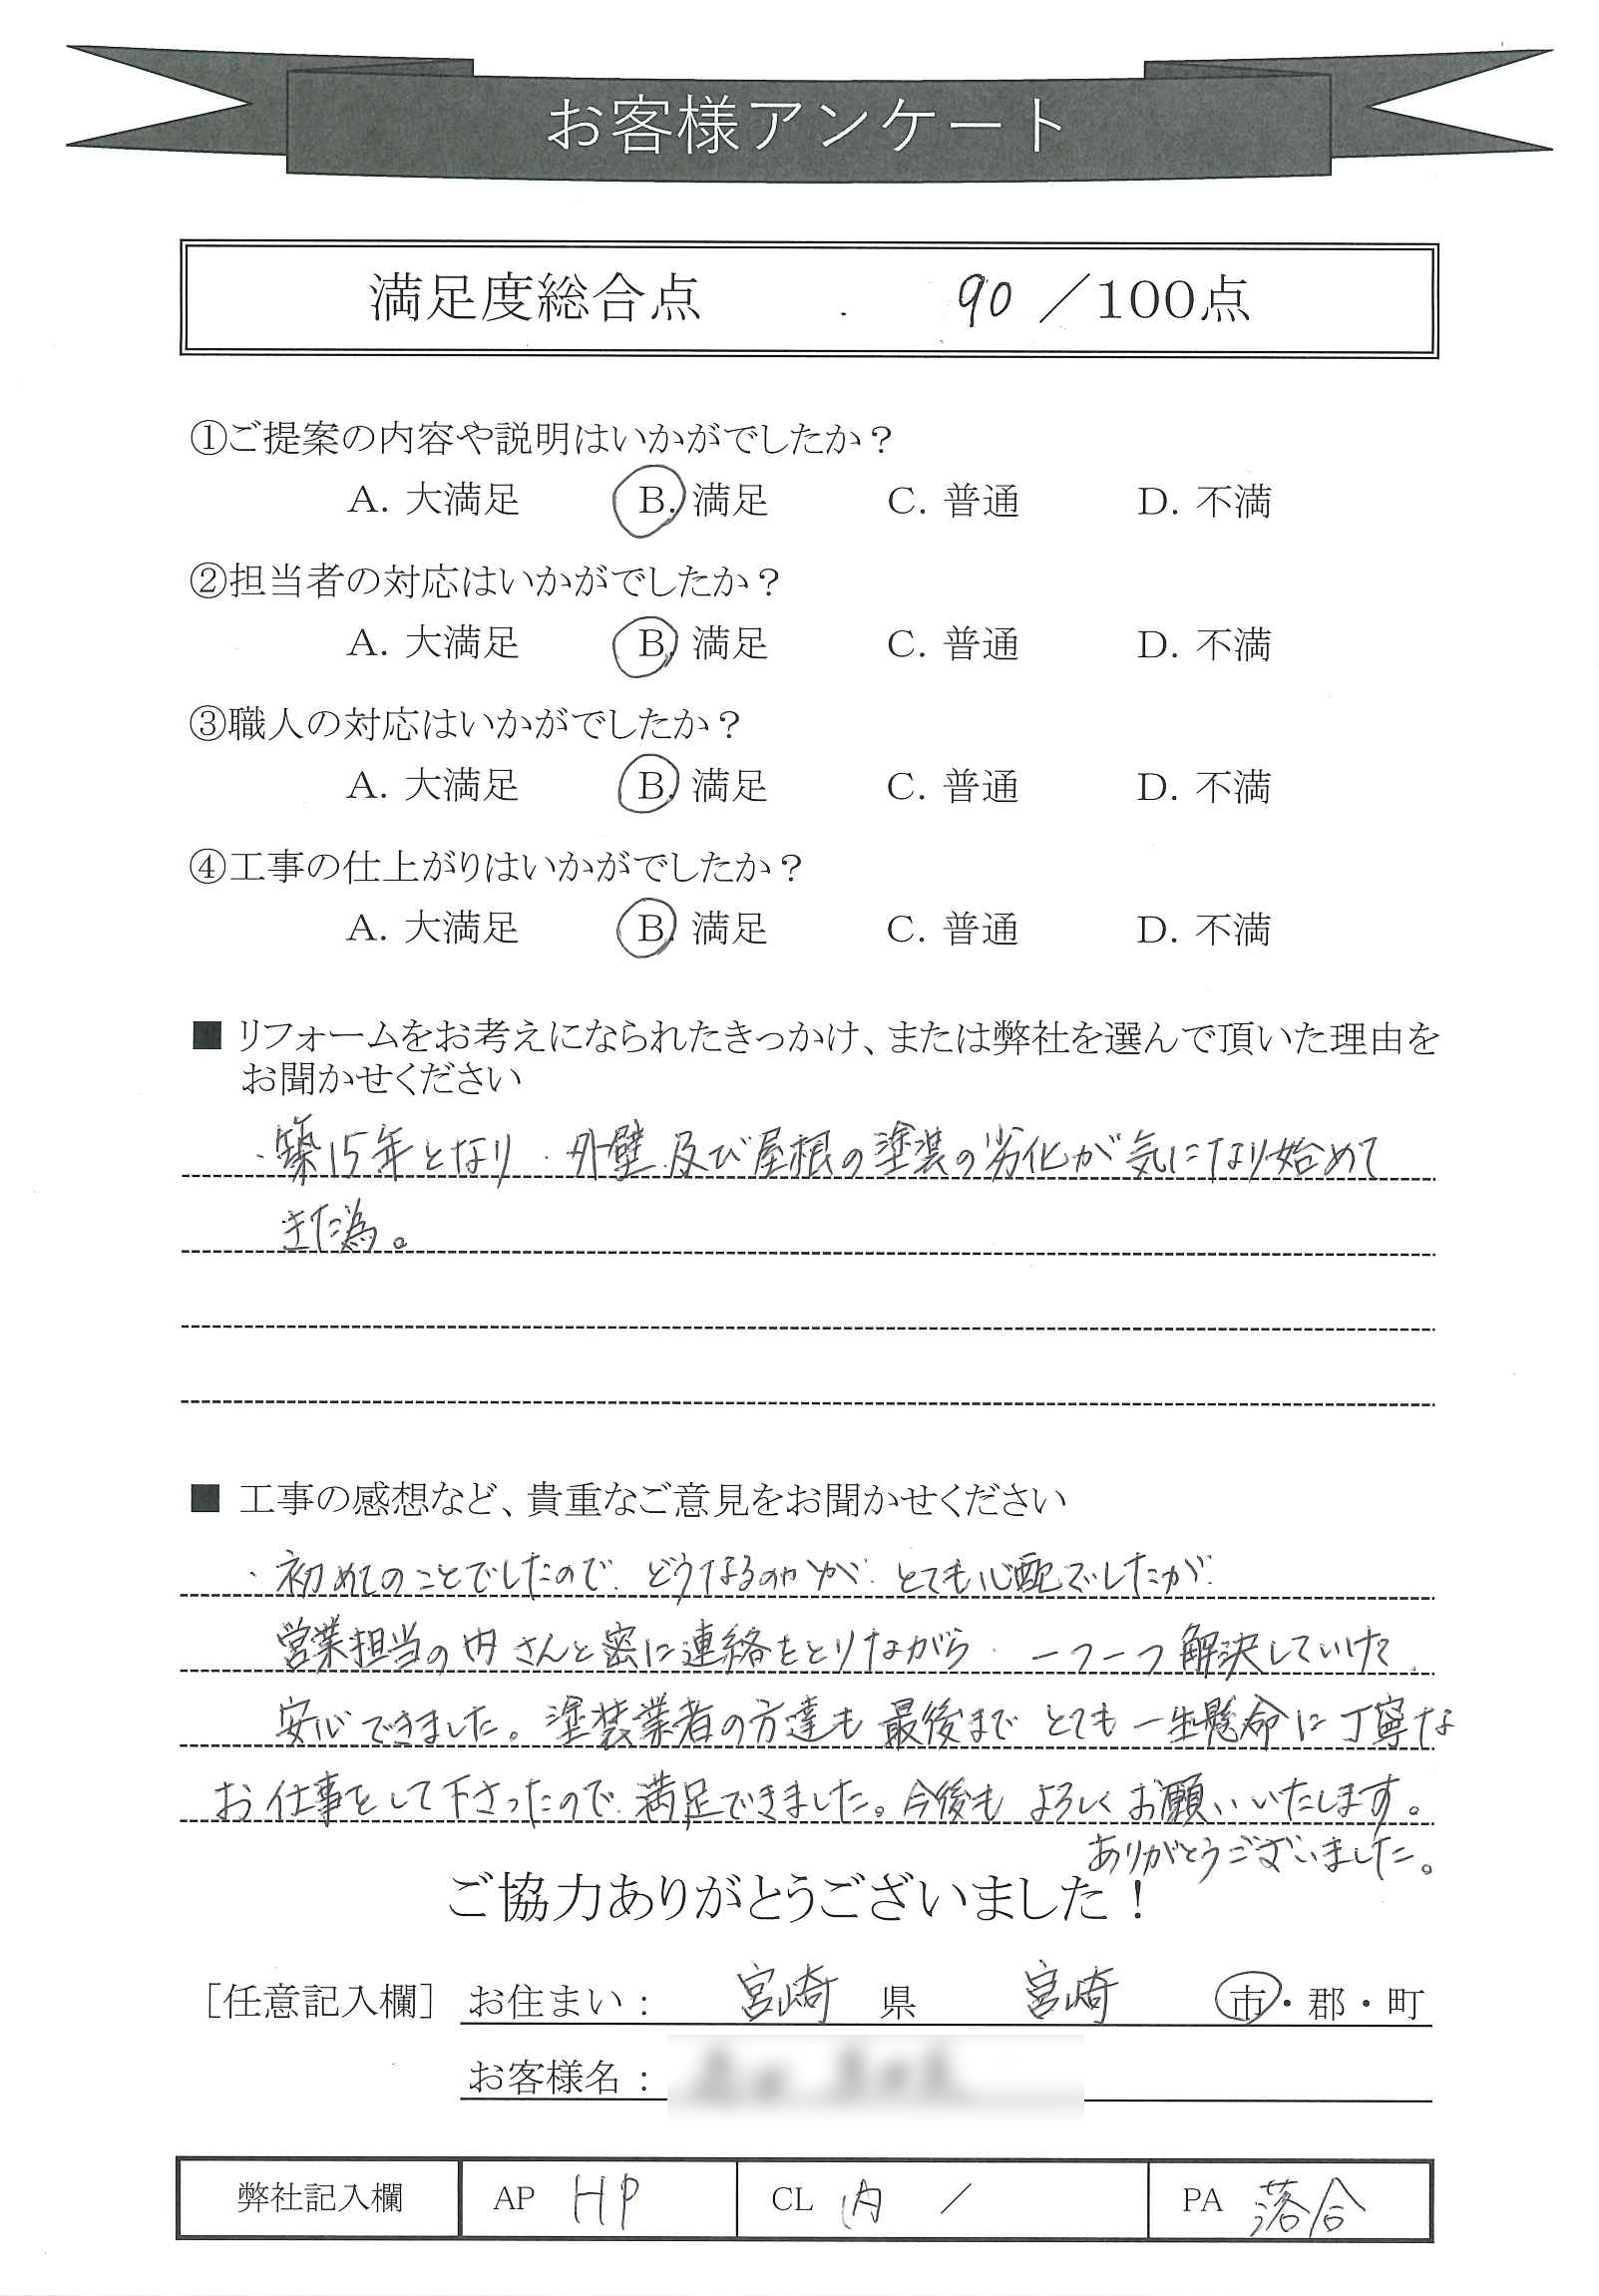 お客様アンケート
満足度総合点 90 ／100点
①ご提案の内容や説明はいかがでしたか？
A. 大満足 B. 満足 C. 普通 D. 不満
②担当者の対応はいかがでしたか？
A. 大満足 B. 満足 C. 普通 D. 不満
③職人の対応はいかがでしたか？
A. 大満足 B. 満足 C. 普通 D. 不満
④工事の仕上がりはいかがでしたか？
A. 大満足 B. 満足 C. 普通 D. 不満
■ リフォームをお考えになられたきっかけ、または弊社を選んで頂いた理由を
お聞かせください
・築15年となり、外壁及び屋根の塗装の劣化が気になり始めて
きた為。
■ 工事の感想など、貴重なご意見をお聞かせください
・初めてのことでしたので、どうなるのかが、とても心配でしたが、
営業担当の内さんと密に連絡をとりながら、一つ一つ解決していけて
安心できました。塗装業者の方達も最後までとても一生懸命に丁寧な
お仕事をして下さったので、満足できました。今後もよろしくお願いいたします。
ありがとうございました。
ご協力ありがとうございました！
［任意記入欄］ お住まい： 宮崎 県 宮崎 市・郡・町
お客様名：
弊社記入欄 AP HP CL 内 ／ PA 落合